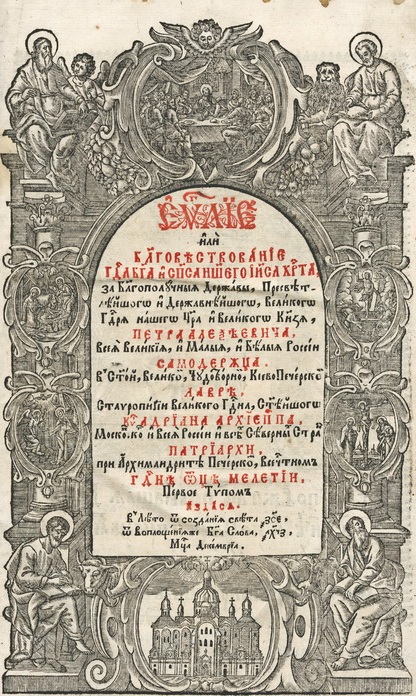 ЕѴⷢ҇ЛІЕ
ИлѝИ
БЛ҃ГОВѢСТВОВАНІЕ
ГДⷭ҇А БГ҃А И СПАСА НШ҃ЕГО ІИС҃А ХРТⷭ҇А,
ЗА Бл҃гополꙋчныѧ Державы, Пресвѣт-
лѣйшагѡ и Державнѣйшагѡ, Великогѡ
Гдⷭ҇рѧ нашегѡ Цр҃ѧ и Великогѡ Кнѕ҃ѧ,
ПЕТРА АЛЕѮѢЕВИЧА,
Всеѧ Великіѧ, и Малыѧ, и Бѣлыѧ Россіи
САМОДЕРЖЦА.
В Ст҃ой, Великой, Чꙋдотворной, Кіево Печерской
ЛАВРѢ,
Стаѵропигіи Великого Гдⷭ҇на, Ст҃ѣйшогѡ
КѴⷬ҇ АДРІАНА АРХІЕПⷭ҇ПА,
Московско и Всеѧ Россіи и всѣⷯ Сѣверныⷯ Страⷩ
ПАТРІАРХИ,
при Архимандритѣ Печерско, Всечⷭ҇тномъ
ГДⷭ҇НѢ ѾЦѢ МЕЛЕТІИ,
Первое Тѵпомъ
ИЗДАСѦ.
В Лѣто ѿ созданіѧ свѣта ҂зсе,
ѿ Воплощеніѧже Бг҃а Слова, ҂ахчз,
Мцⷭ҇а Декемвріа.